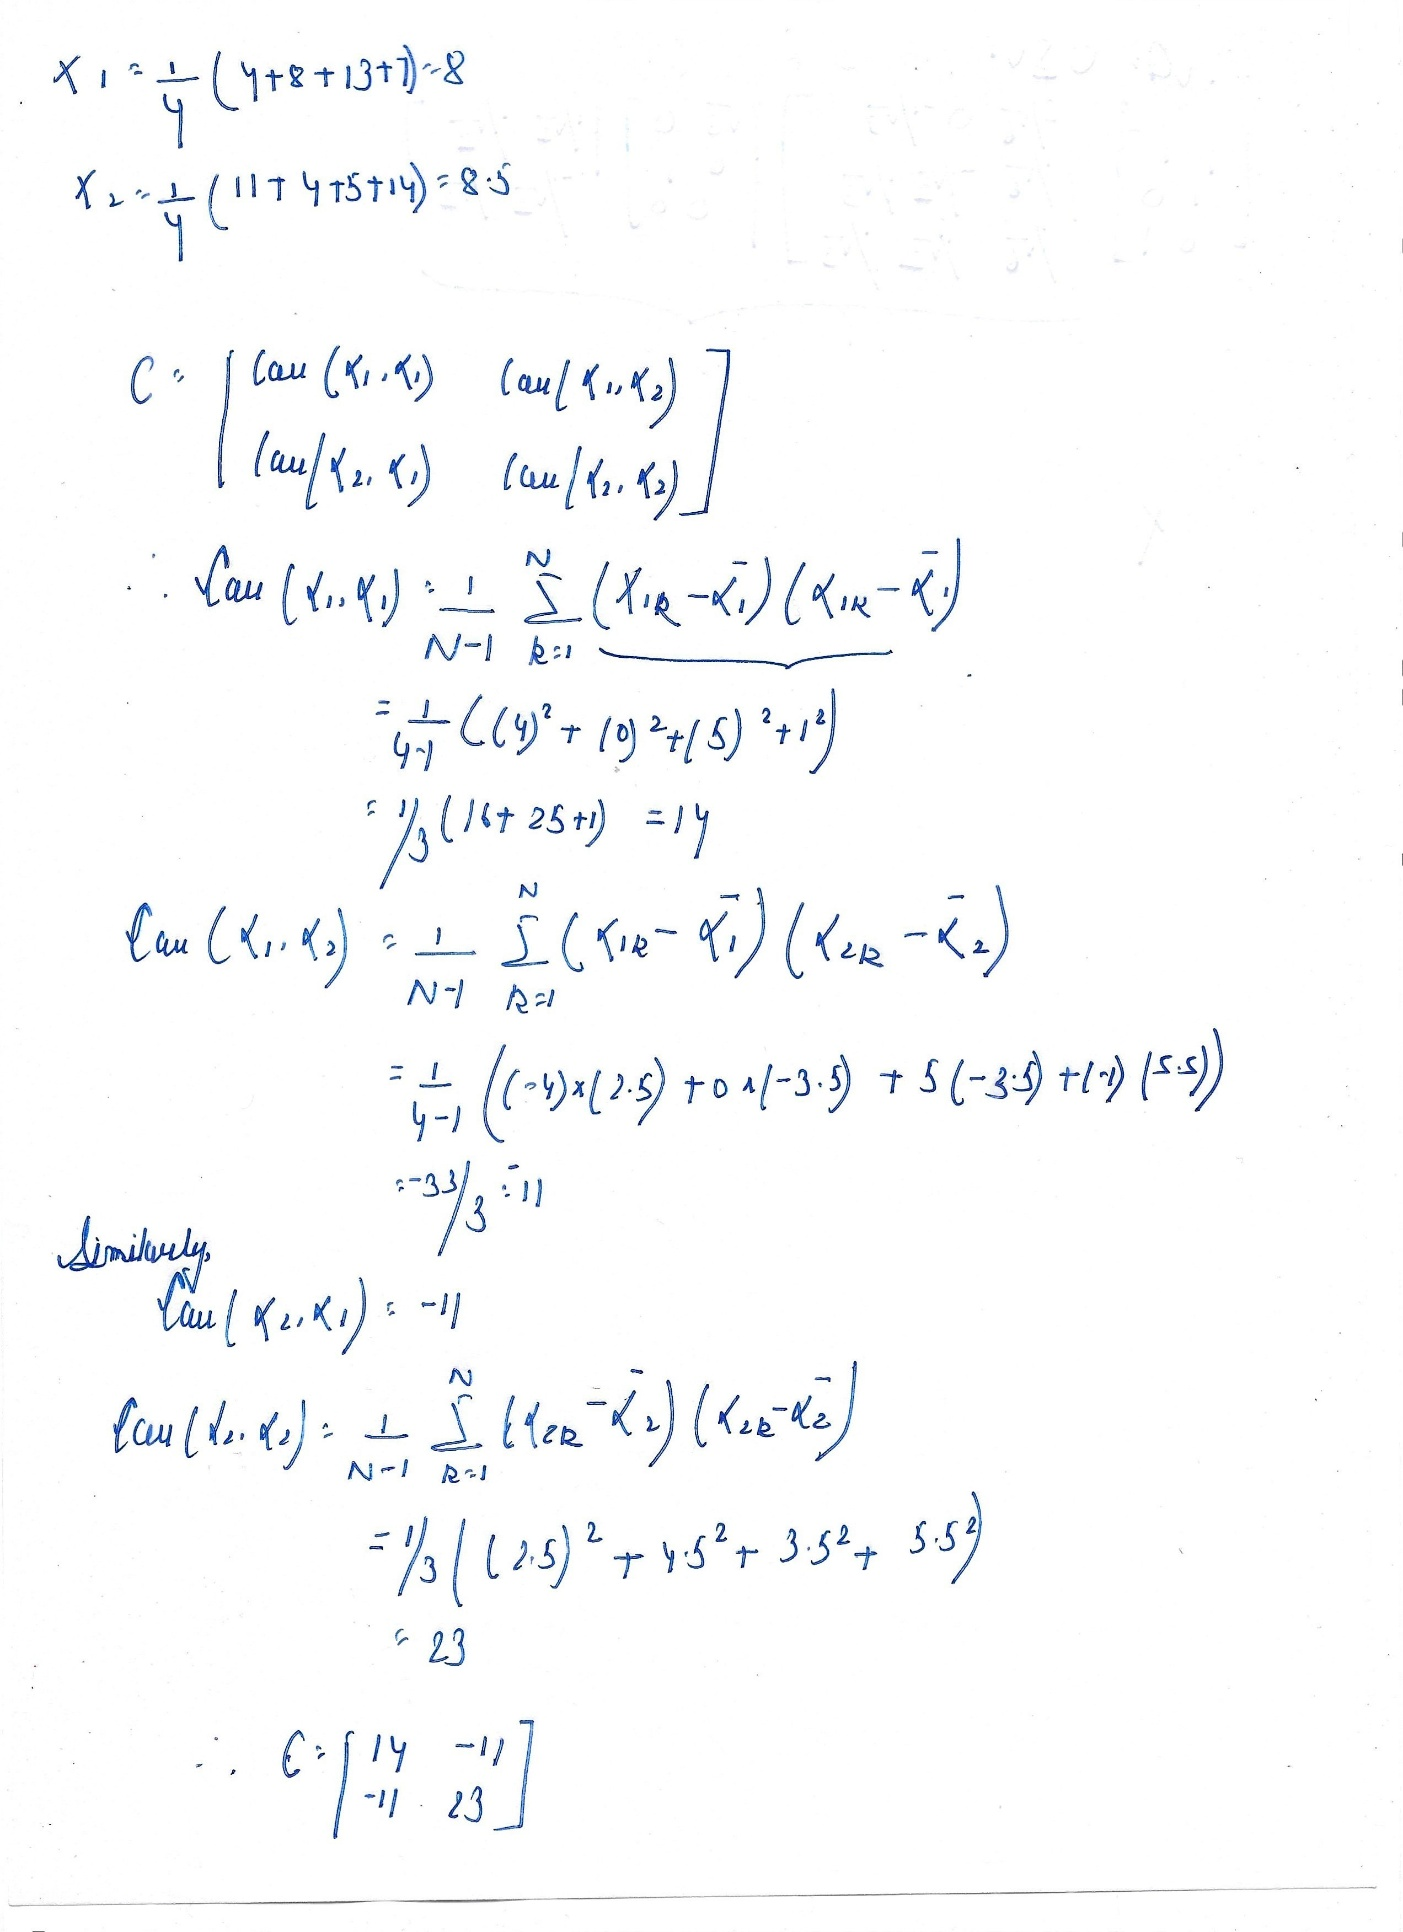 x₁ = 1/4 (4+8+13+7) = 8
x₂ = 1/4 (11+4+5+14) = 8.5
C = [ Cov (x₁, x₁) Cov (x₁, x₂)
Cov (x₂, x₁) Cov (x₂, x₂) ]
∴ Cov (x₁, x₁) = 1/(N-1) Σ_{k=1}^{N} (x₁ₖ - x̄₁) (x₁ₖ - x̄₁)
= 1/(4-1) ((4)² + (0)² + (5)² + 1²)
= 1/3 (16 + 25 + 1) = 14
Cov (x₁, x₂) = 1/(N-1) Σ_{k=1}^{N} (x₁ₖ - x̄₁) (x₂ₖ - x̄₂)
= 1/(4-1) ((-4)×(2.5) + 0×(-3.5) + 5(-3.5) + (-1)(5.5))
= -33/3 = -11
Similarly,
Cov (x₂, x₁) = -11
Cov (x₂, x₂) = 1/(N-1) Σ_{k=1}^{N} (x₂ₖ - x̄₂) (x₂ₖ - x̄₂)
= 1/3 ((2.5)² + 4.5² + 3.5² + 5.5²)
= 23
∴ C = [ 14 -11
-11 23 ]